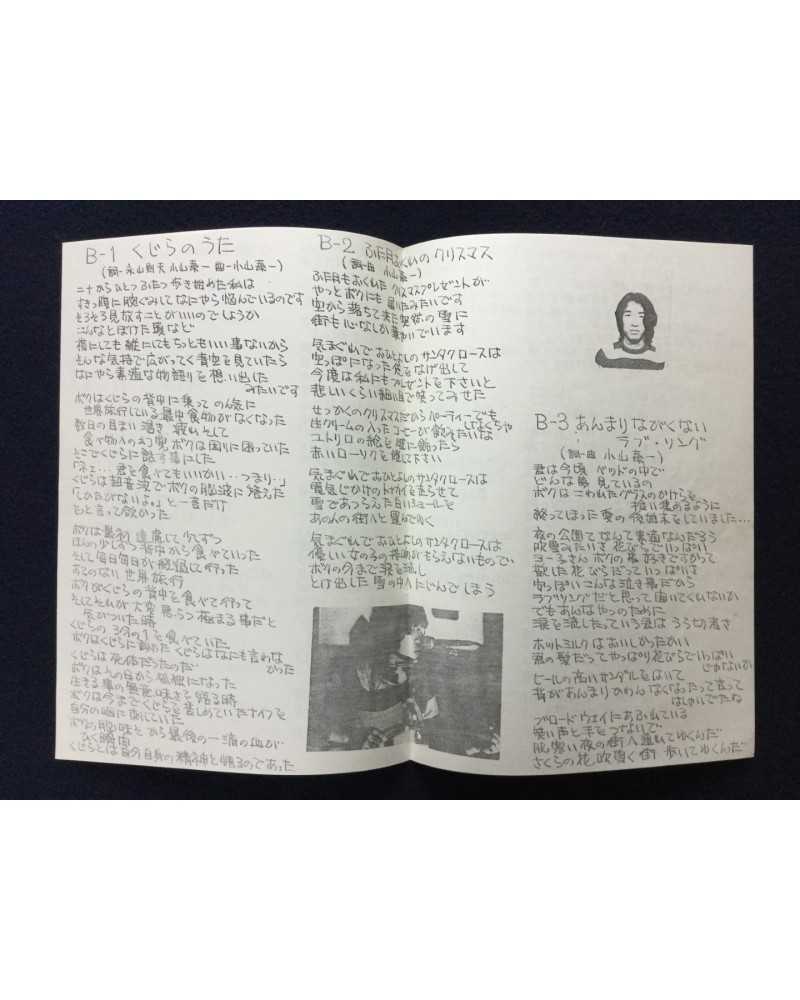 B-1 くじらのうた
(詞-永山則夫 小山髙一 曲-小山髙一)
二十からひとつふたつ歩き始めた私は
すきっ腹に腕ぐみしてなにやら悩んでいるのです
そろそろ見放すことがいいのでしょうか
こんなとぼけた頭など
横にしても縦にしてもちっともいい事ないから
そんな気持で広がってく青空を見ていたら
なにやら素適な物語りを想い出した
みたいです
ボクはくじらの背中に乗って のん気に
世界旅行している最中食物がなくなった
数日の目まい 渇き 寂しそして
食べ物への幻想 ボクは困りに困っていた
そこでくじらに話す事にした
「ネェ…君を食べてもいいかい‥つまり‥」
くじらは超音波でボクの脳波に答えた
「しかたがないよ。」と一言だけ
もっと言って欲かった
ボクは最初 遠慮して少しずつ
ほんの少しずつ背中から食べていった
そして毎日毎日が勉強して行った
あてのない世界旅行
ボクがくじらの背中を食べて行って
そしてそれが大変 悪らつ極まる事だと
気がついた時
くじらの 3分の1を食べていた
ボクはくじらに詫めた くじらはなにも言わな
かった
くじらは死体だったのだ
ボクはその日から孤独になった
生きる事の無意味さを語る時
ボクは今までくじらを苦しめていたナイフを
自分の胸に刺していた
ボクの胸の中から最後の一滴の血が
ひく瞬間
くじらとは自分自身の精神と悟るのであった
B-2 ふた月おくれのクリスマス
(詞-曲 小山髙一)
ふた月もおくれた クリスマスプレゼントが
やっとボクにも届いたみたいです
空から落ちて来た突然の雪に
街も心なしか華いでいます
気まぐれで おひとよしの サンタクロースは
空っぽになった袋をなげ出して
今度は私にもプレゼントを下さいと
悲しいくらい細い目で笑ってみせた
せっかくのクリスマスだから パーティーでも
しなくちゃ
生クリームの入ったコーヒーが飲みたいな
ユトリロの絵を壁に飾ったら
赤いローソクを燈して下さい
気まぐれで おひとよしの サンタクロースは
電気じかけのトナカイを走らせて
雪であつらえた白いショールを
あの人の街へと運んでゆく
気まぐれで おひとよしの サンタクロースは
優しい女の子の接吻がもらえないもので
ボクの分まで涙を流し
とけ出した 雪の中へにじんでしまう
B-3 あんまりながくない
ラブ・ソング
(詞-曲 小山髙一)
君は今頃 ベッドの中で
どんな夢 見ているの
ボクは こわれたグラスのかけらを
拾い集めるように
終ってしまった 愛の後始末をしていました…
夜の公園て なんて素適なんだろう
吹雪みたいさ 花びらでいっぱい
ヨーコさん ボクの事 好きですかって
散した 花びらだって いっぱいさ
安っぽい こんな泣き事だから
ラブソングだと思って聞いてくれないか
でもあんなやつのために
涙を流したっていう君は うら切者さ
ホットミルクは おいしかったかい
君の髪だって やっぱり花びらでいっぱい
じゃないか
ヒールの高いサンダルをはいて
背があんまりかわんなくなったって言って
はしゃいでたね
ブロードウェイにあふれている
笑い声と手をつないで
肌寒い夜の街へ運んでゆくんだ
さくらの花 吹雪く街 歩いてゆくんだ